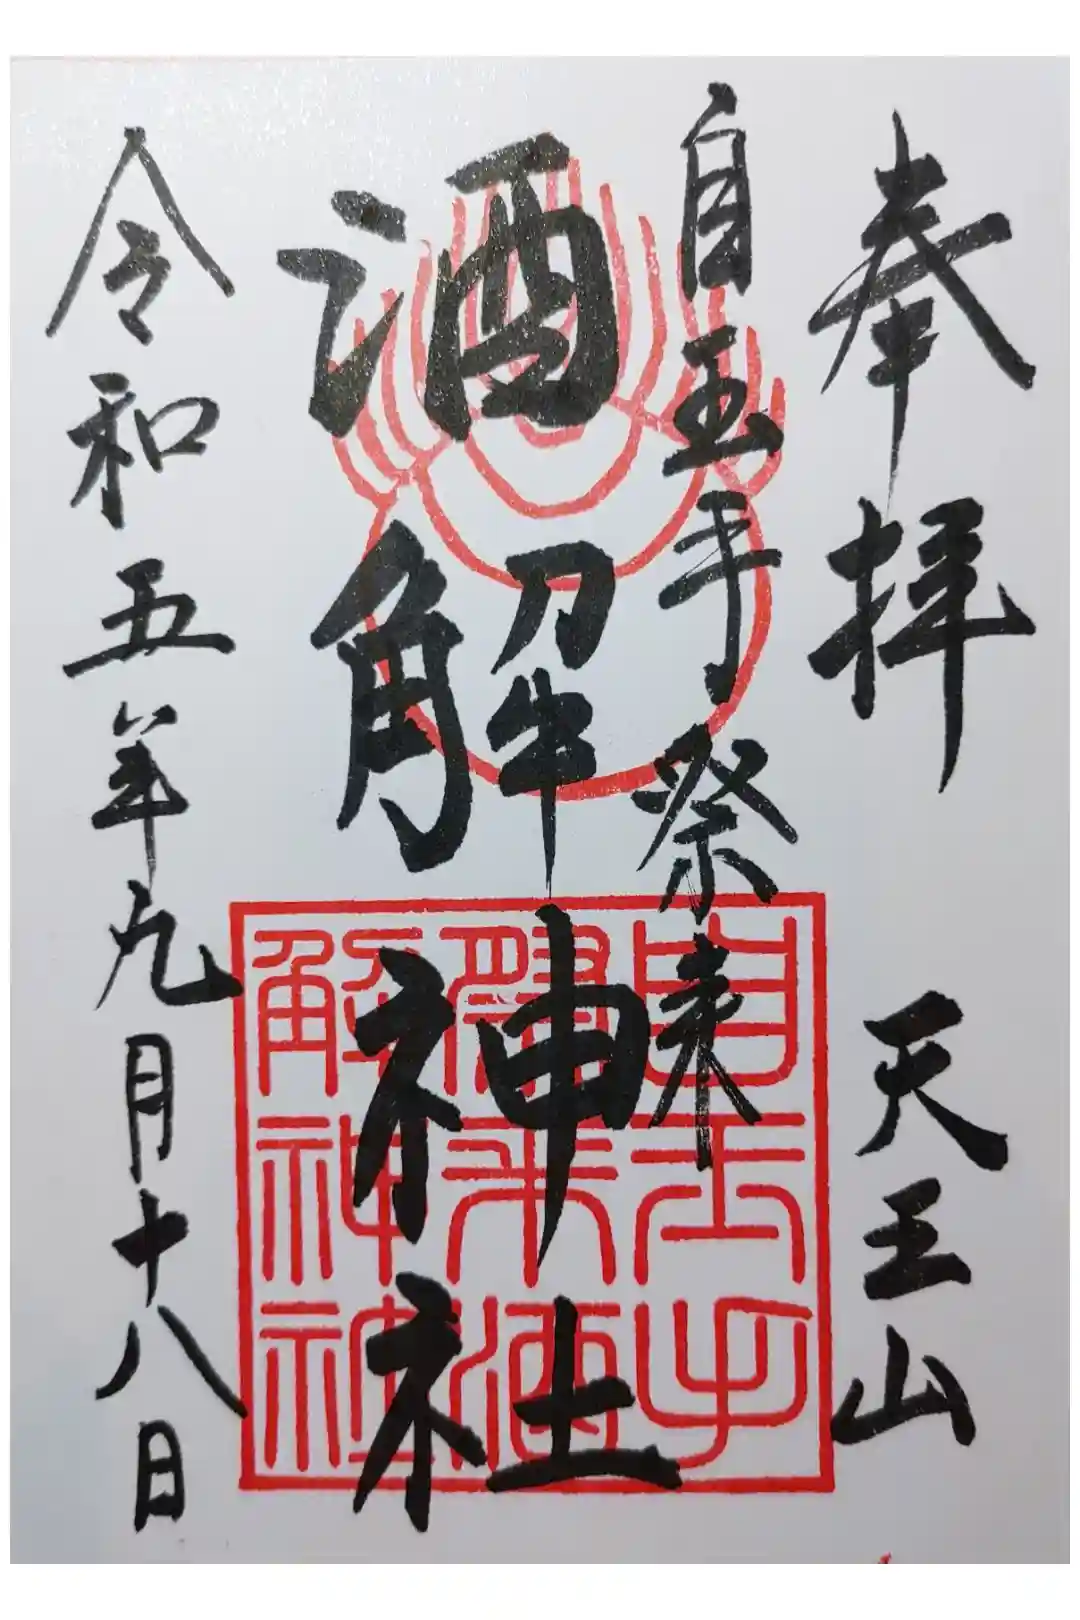 奉拝 天王山
自玉手祭来
酒解神社
令和五年九月十八日
自玉手
祭来酒
解神社